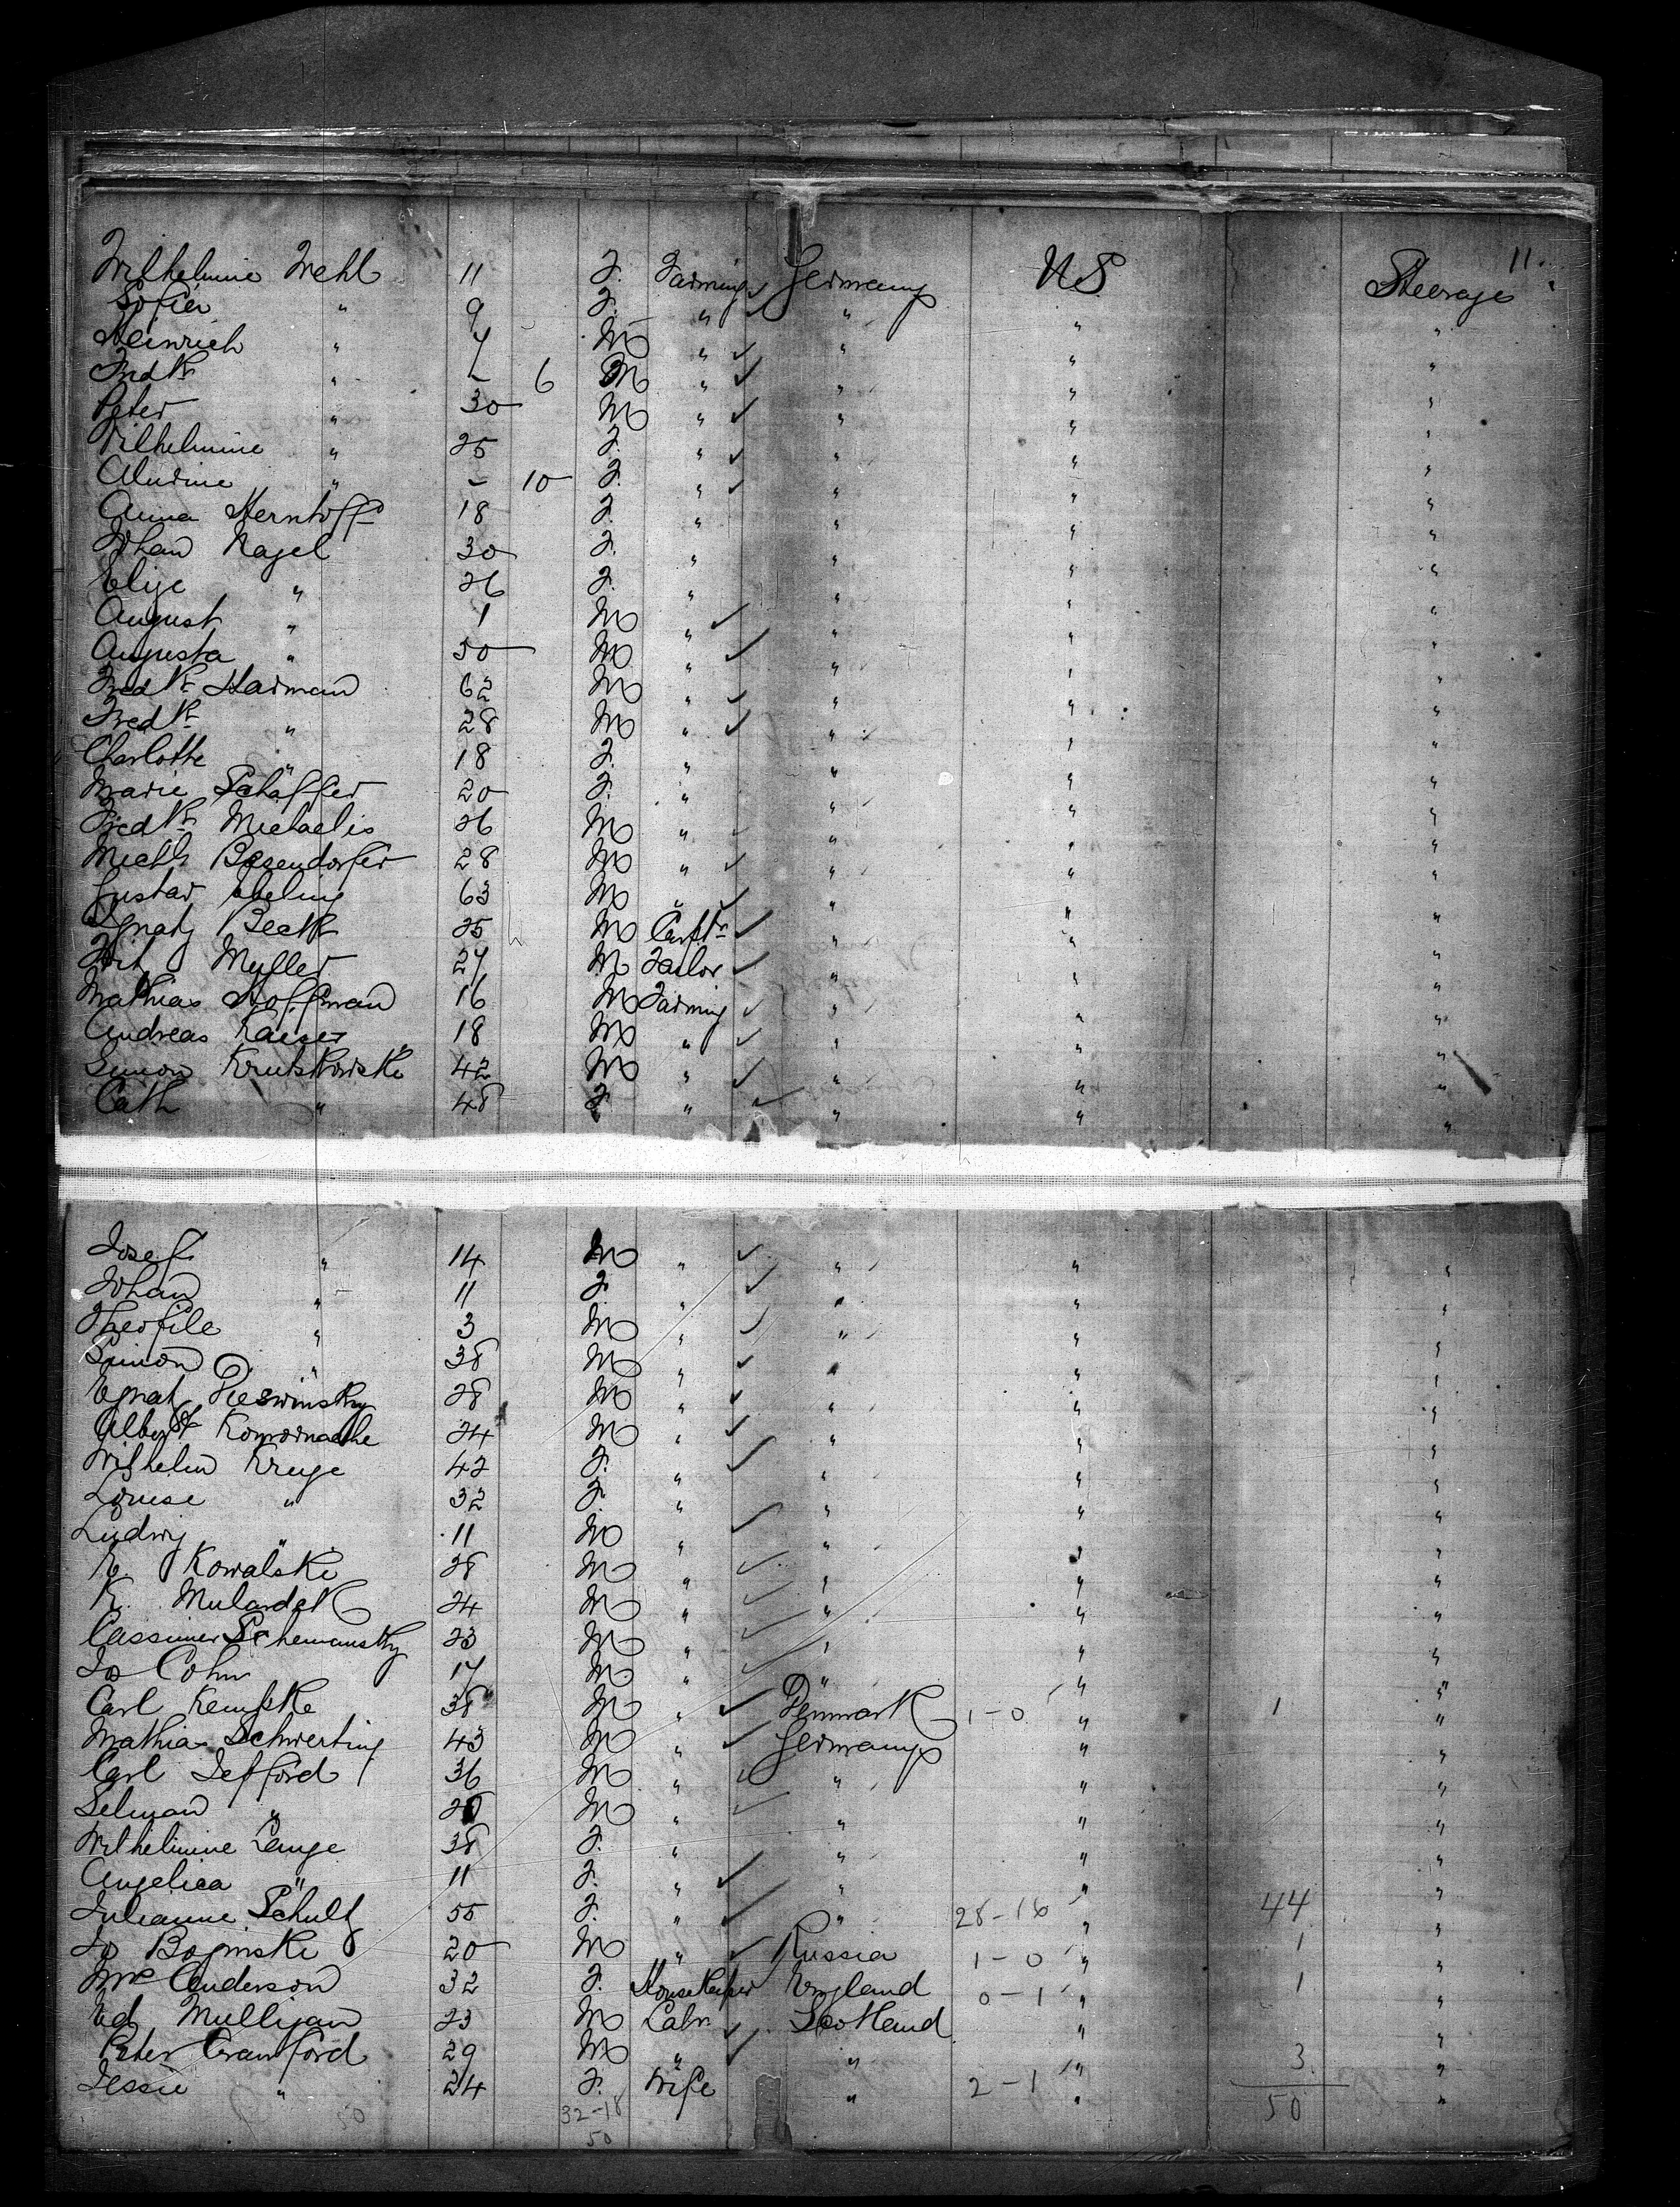 11.
Wilhelmine Wehl 11 F. Farming Germany U S Steerage
Sofier " 9 F. " " " "
Heinrich " 7 M " " " "
Fredk " - 6 M " " " "
Peter " 30 M " " " "
Wilhelmine " 25 F. " " " "
Aludine " - 10 F. " " " "
Anna Herntoff 18 F. " " " "
Johan Nagel 30 F. " " " "
Elije " 26 F. " " " "
August " 1 M " " " "
Augusta " 50 M " " " "
Fredk Harman 62 M " " " "
Fredk " 28 M " " " "
Charlotte " 18 F. " " " "
Marie Schäffer 20 F. " " " "
Fredk Michaelis 26 M " " " "
Michl Besendorfer 28 M " " " "
Gustav Ebeling 63 M " " " "
Ignatz Beck 25 M Carptr " " "
Frit Muller 27 M Tailor " " "
Mathias Hoffman 16 M Farming " " "
Andreas Kaeser 18 M " " " "
Simon Krutskowski 42 M " " " "
Cath " 48 F " " " "
Josef " 14 M " " " "
Johan " 11 F. " " " "
Theofile " 3 M " " " "
Simon " 38 M " " " "
Egnatz Pieswinsky 28 M " " " "
Albert 24 M " " " "
Wilhelm Kruge 42 F. " " " "
Louise " 32 F. " " " "
Ludwig " 11 M " " " "
E. Kowalski 28 M " " " "
K. Mulardek 24 M " " " "
Cassimer Schemansky 23 M " " " "
Jos Cohn 17 M " " " "
Carl Kempke 38 M " Denmark 1-0 " 1 "
Mathias Schwerting 43 M " Germany " "
Carl Jefford 36 M " " " "
Selman " M " " " "
Wilhelmine Lange 38 F. " " " "
Angelica " 11 F. " " " "
Julianne Schultz 55 F. " " 28-16 " 44 "
Jos Boginski 20 M " Russia 1-0 " 1 "
Mrs Anderson 32 F. Housekeeper England 0-1 " 1 "
Ed Mulligan 23 M Labr Scotland " "
Peter Crawford 29 M " " " 3 "
Jessie " 24 F. Wife " 2-1 " "
50 32-18 50
50